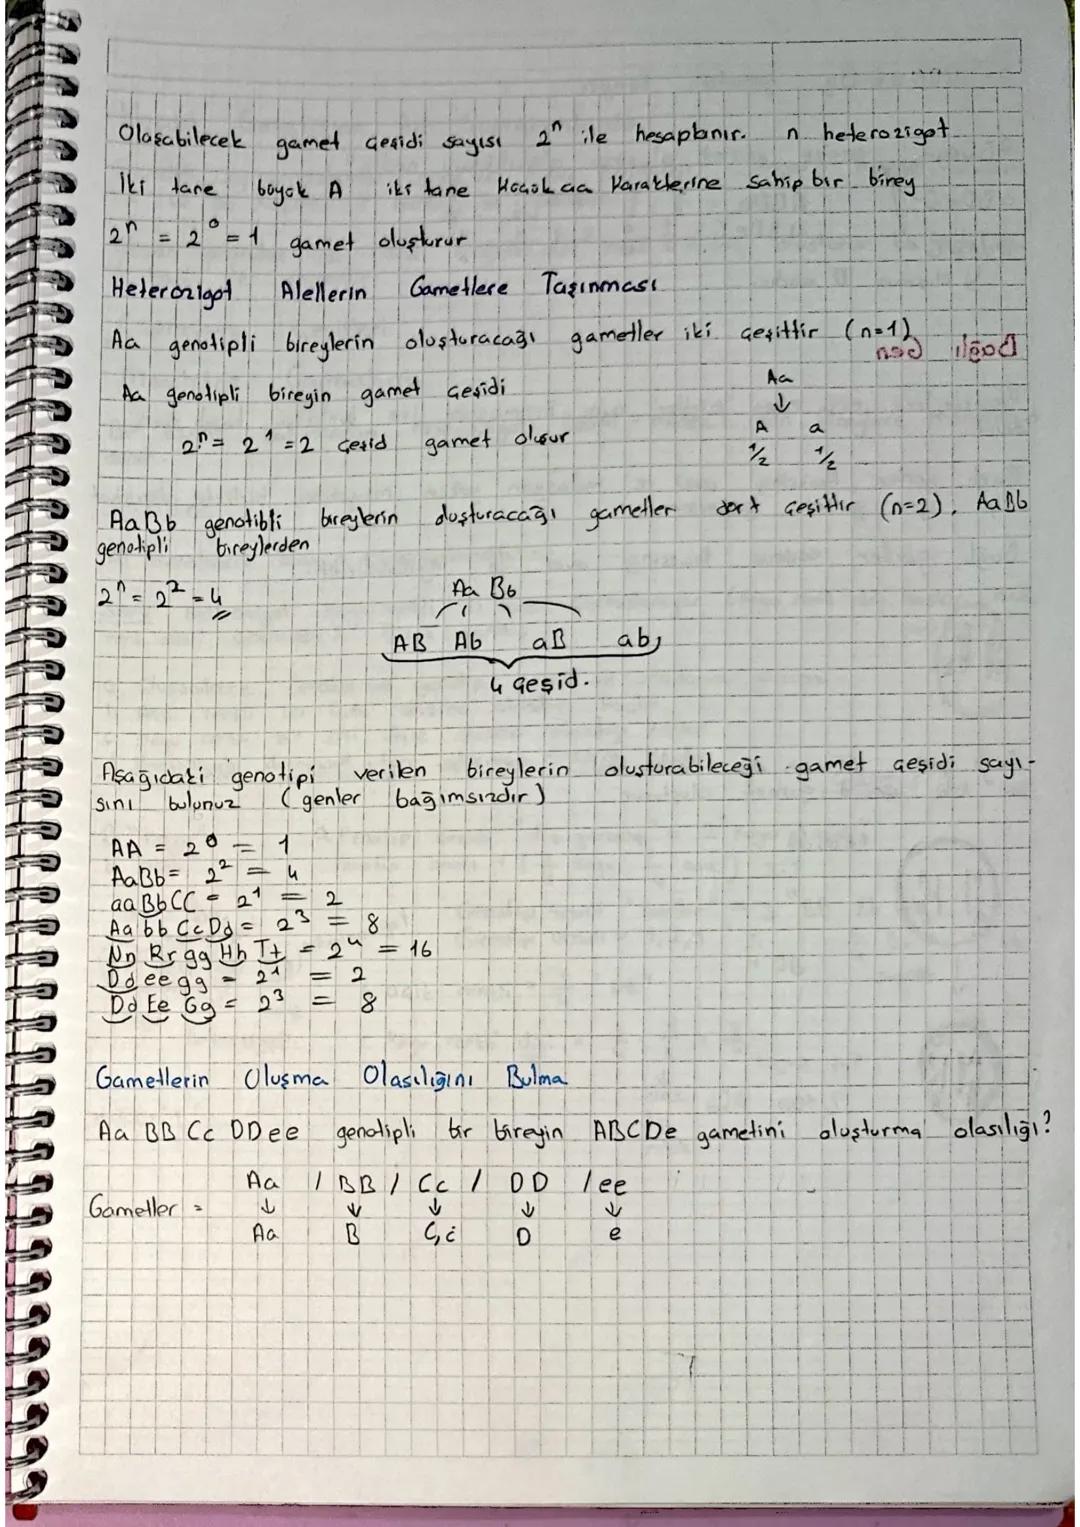 Oluşabilecek gamet çeşidi sayısı 2ⁿ ile hesaplanır. n heterozigot
İki tane büyük A iki tane küçük aa karakterine sahip bir birey
2ⁿ = 2⁰ = 1 gamet oluşturur
Heterozigot Alellerin Gametlere Taşınması
Aa genotipli bireylerin oluşturacağı gametler iki çeşittir (n=1)
Aa genotipli bireyin gamet çeşidi
Aa
↓
2ⁿ = 2¹ = 2 çeşid gamet oluşur
A a
1/2 1/2
AaBb genotibli bireylerin oluşturacağı gametler dört çeşittir (n=2). AaBb
genotipli bireylerden
2ⁿ = 2² = 4
Aa Bb
AB Ab aB ab
4 çeşid.
Aşağıdaki genotipi verilen bireylerin oluşturabileceği gamet çeşidi sayı-
sını bulunuz (genler bağımsızdır)
AA = 2⁰ = 1
AaBb = 2² = 4
aaBbCC = 2¹ = 2
Aa bb CcDd = 2³ = 8
Nn Rr gg Hh Tt = 2⁴ = 16
Dd ee gg = 2¹ = 2
Dd Ee Gg = 2³ = 8
Gametlerin Oluşma Olasılığını Bulma
Aa BB Cc DD ee genotipli bir bireyin ABCDe gametini oluşturma olasılığı?
Aa / BB / Cc / DD / ee
Gametler = ↓ ↓ ↓ ↓ ↓
Aa B C,c D e